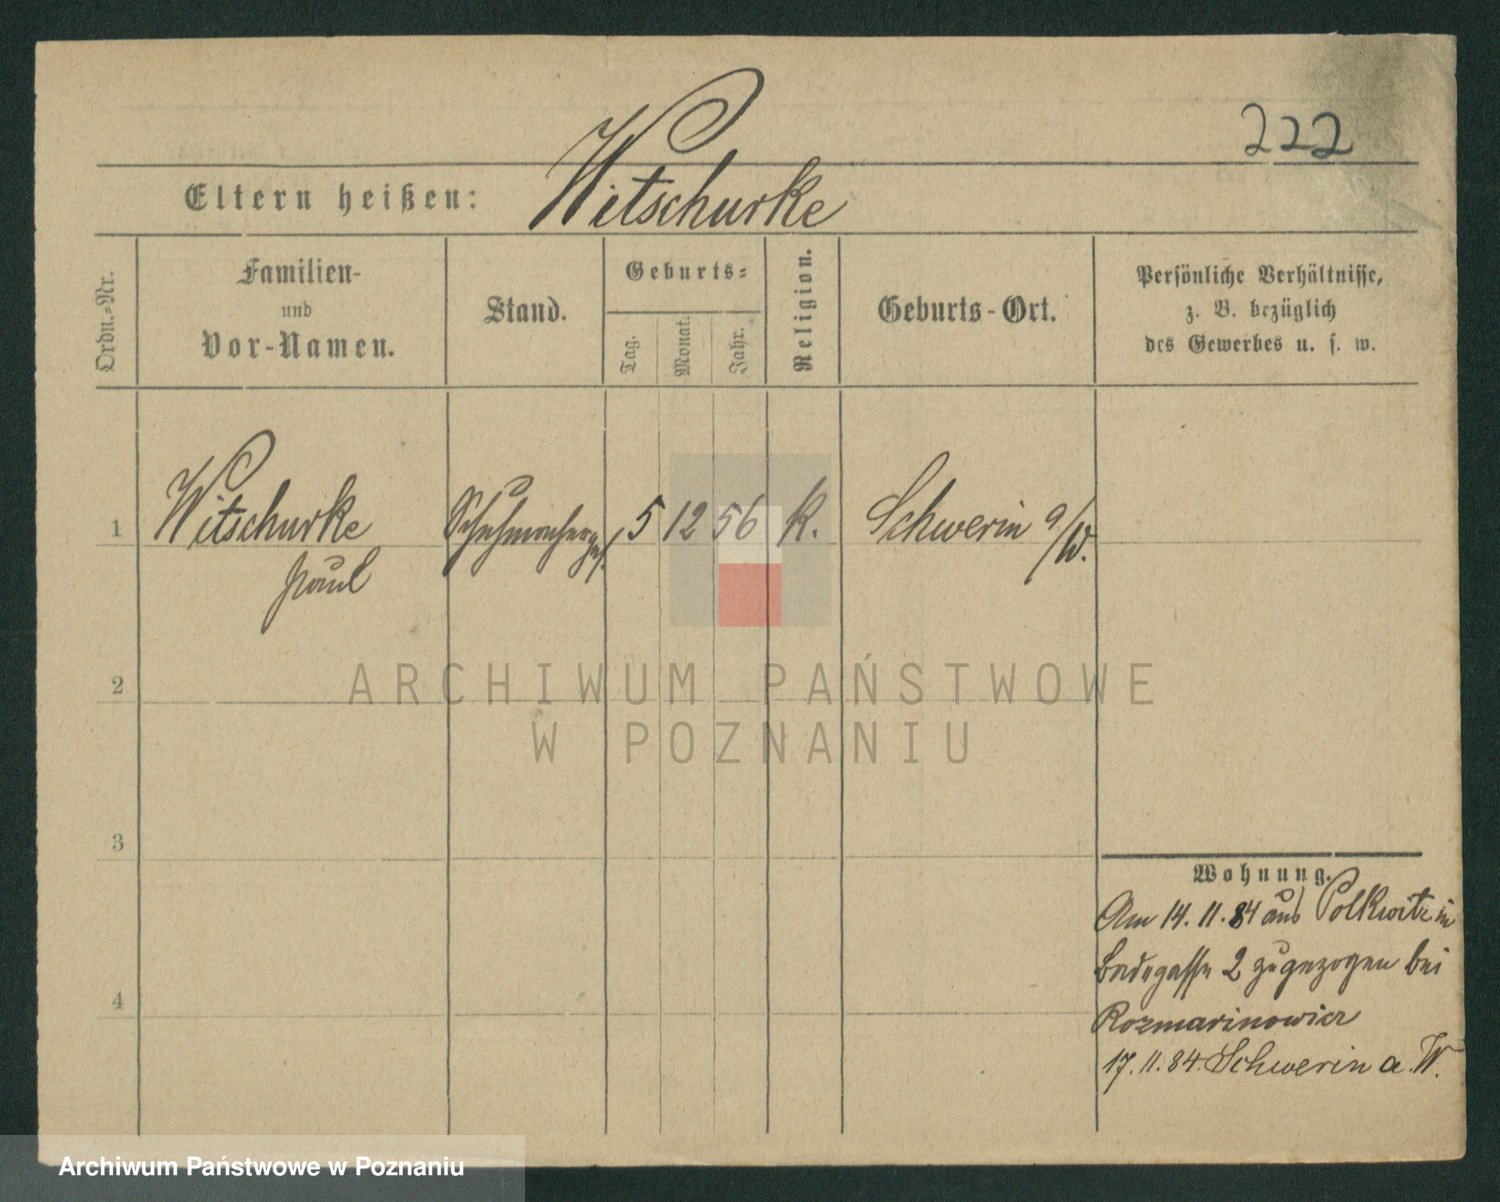 222
Eltern heißen: Witschurke
Ordn.-Nr.
Familien-
und
Vor-Namen.
Stand.
Geburts-
Tag.
Monat.
Jahr.
Religion.
Geburts-Ort.
Persönliche Verhältnisse,
z. B. bezüglich
des Gewerbes u. s. w.
1 Witschurke Schuhmacherges. 5 12 56 k. Schwerin a/W.
Paul
2
ARCHIWUM PAŃSTWOWE
W POZNANIU
3
4
Wohnung.
Am 14. 11. 84 aus Polkwitz in
Badegasse 2 zugezogen bei
Rozmarinowicz
17. 11. 84. Schwerin a. W.
Archiwum Państwowe w Poznaniu